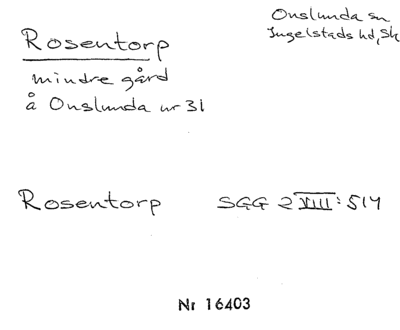 Rosentorp
Onslunda sn
Ingelstads hd, Sk
mindre gård
å Onslunda nr 31
Rosentorp SGG 2 VIII: 514
Nr 16403